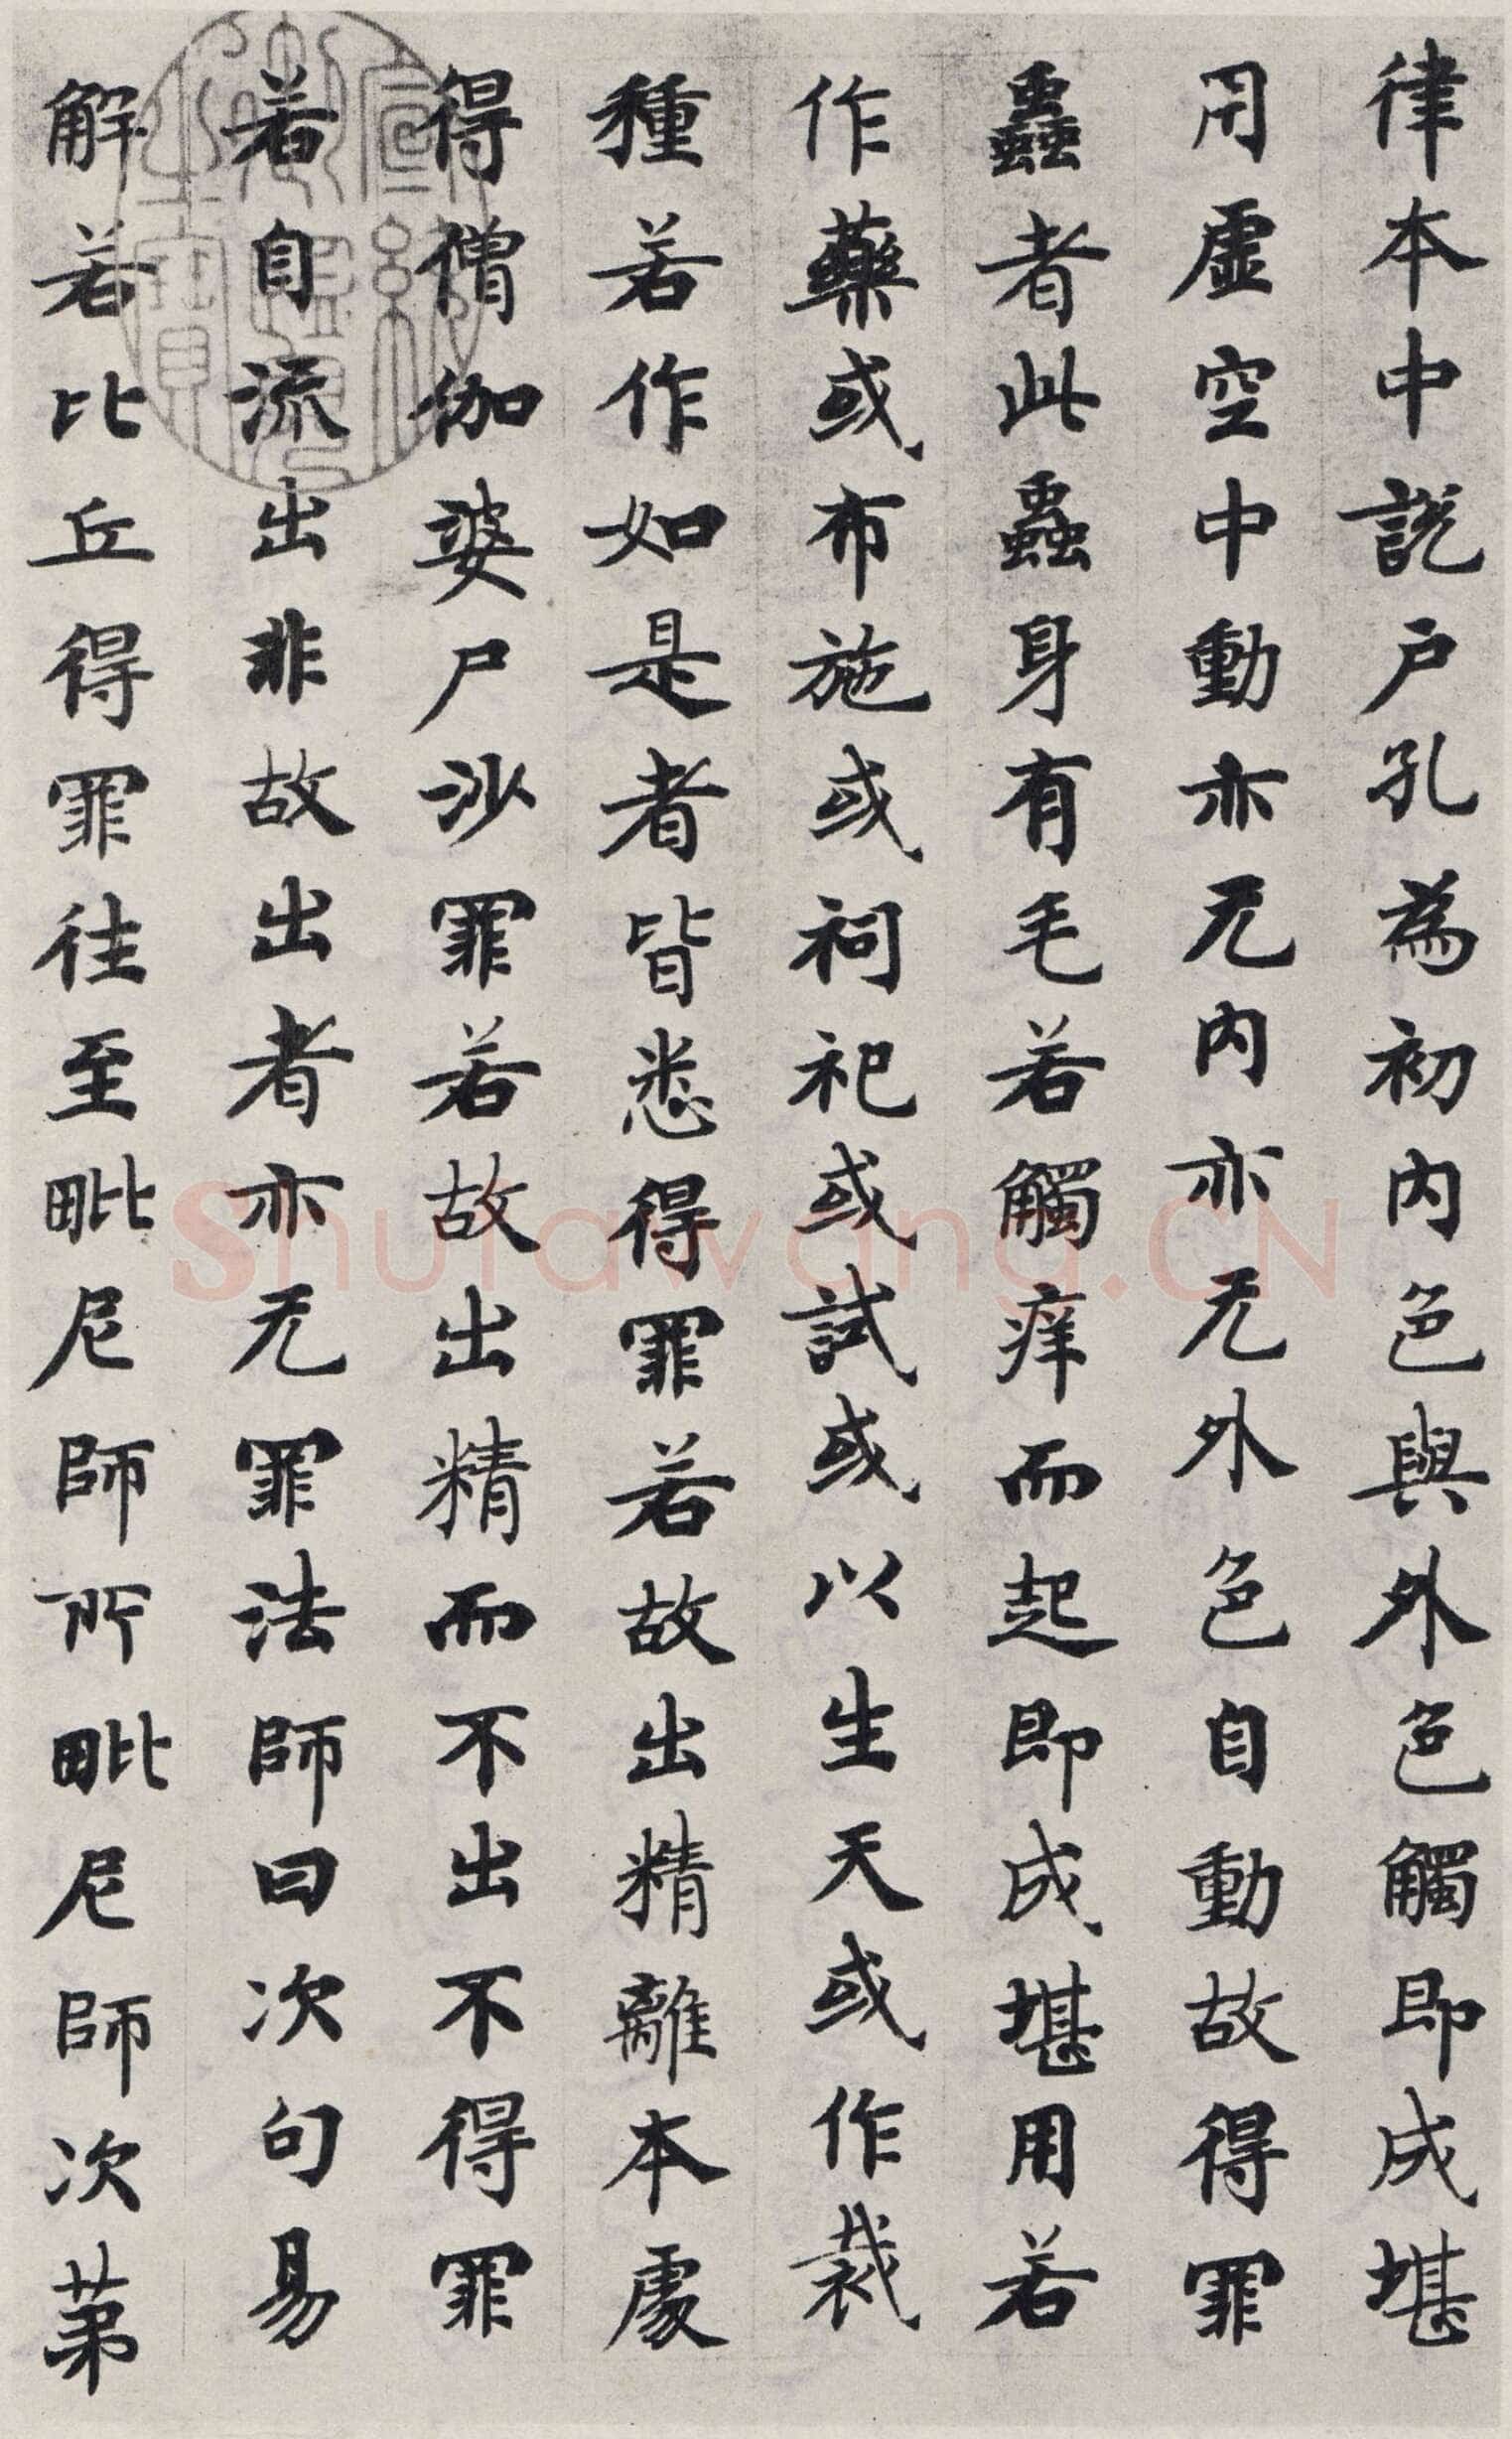 律本中説户孔為初内色與外色觸即成堪
用虚空中動亦无内亦无外色自動故得罪
蟲者此蟲身有毛若觸痒而起即成堪用若
作藥或布施或祠祀或試或以生天或作裁
種若作如是者皆悉得罪若故出精離本處
得僧伽婆尸沙罪若故出精而不出不得罪
若自流出非故出者亦无罪法師曰次句易
解若比丘得罪往至毗尼師所毗尼師次苐
Shufawang.CN